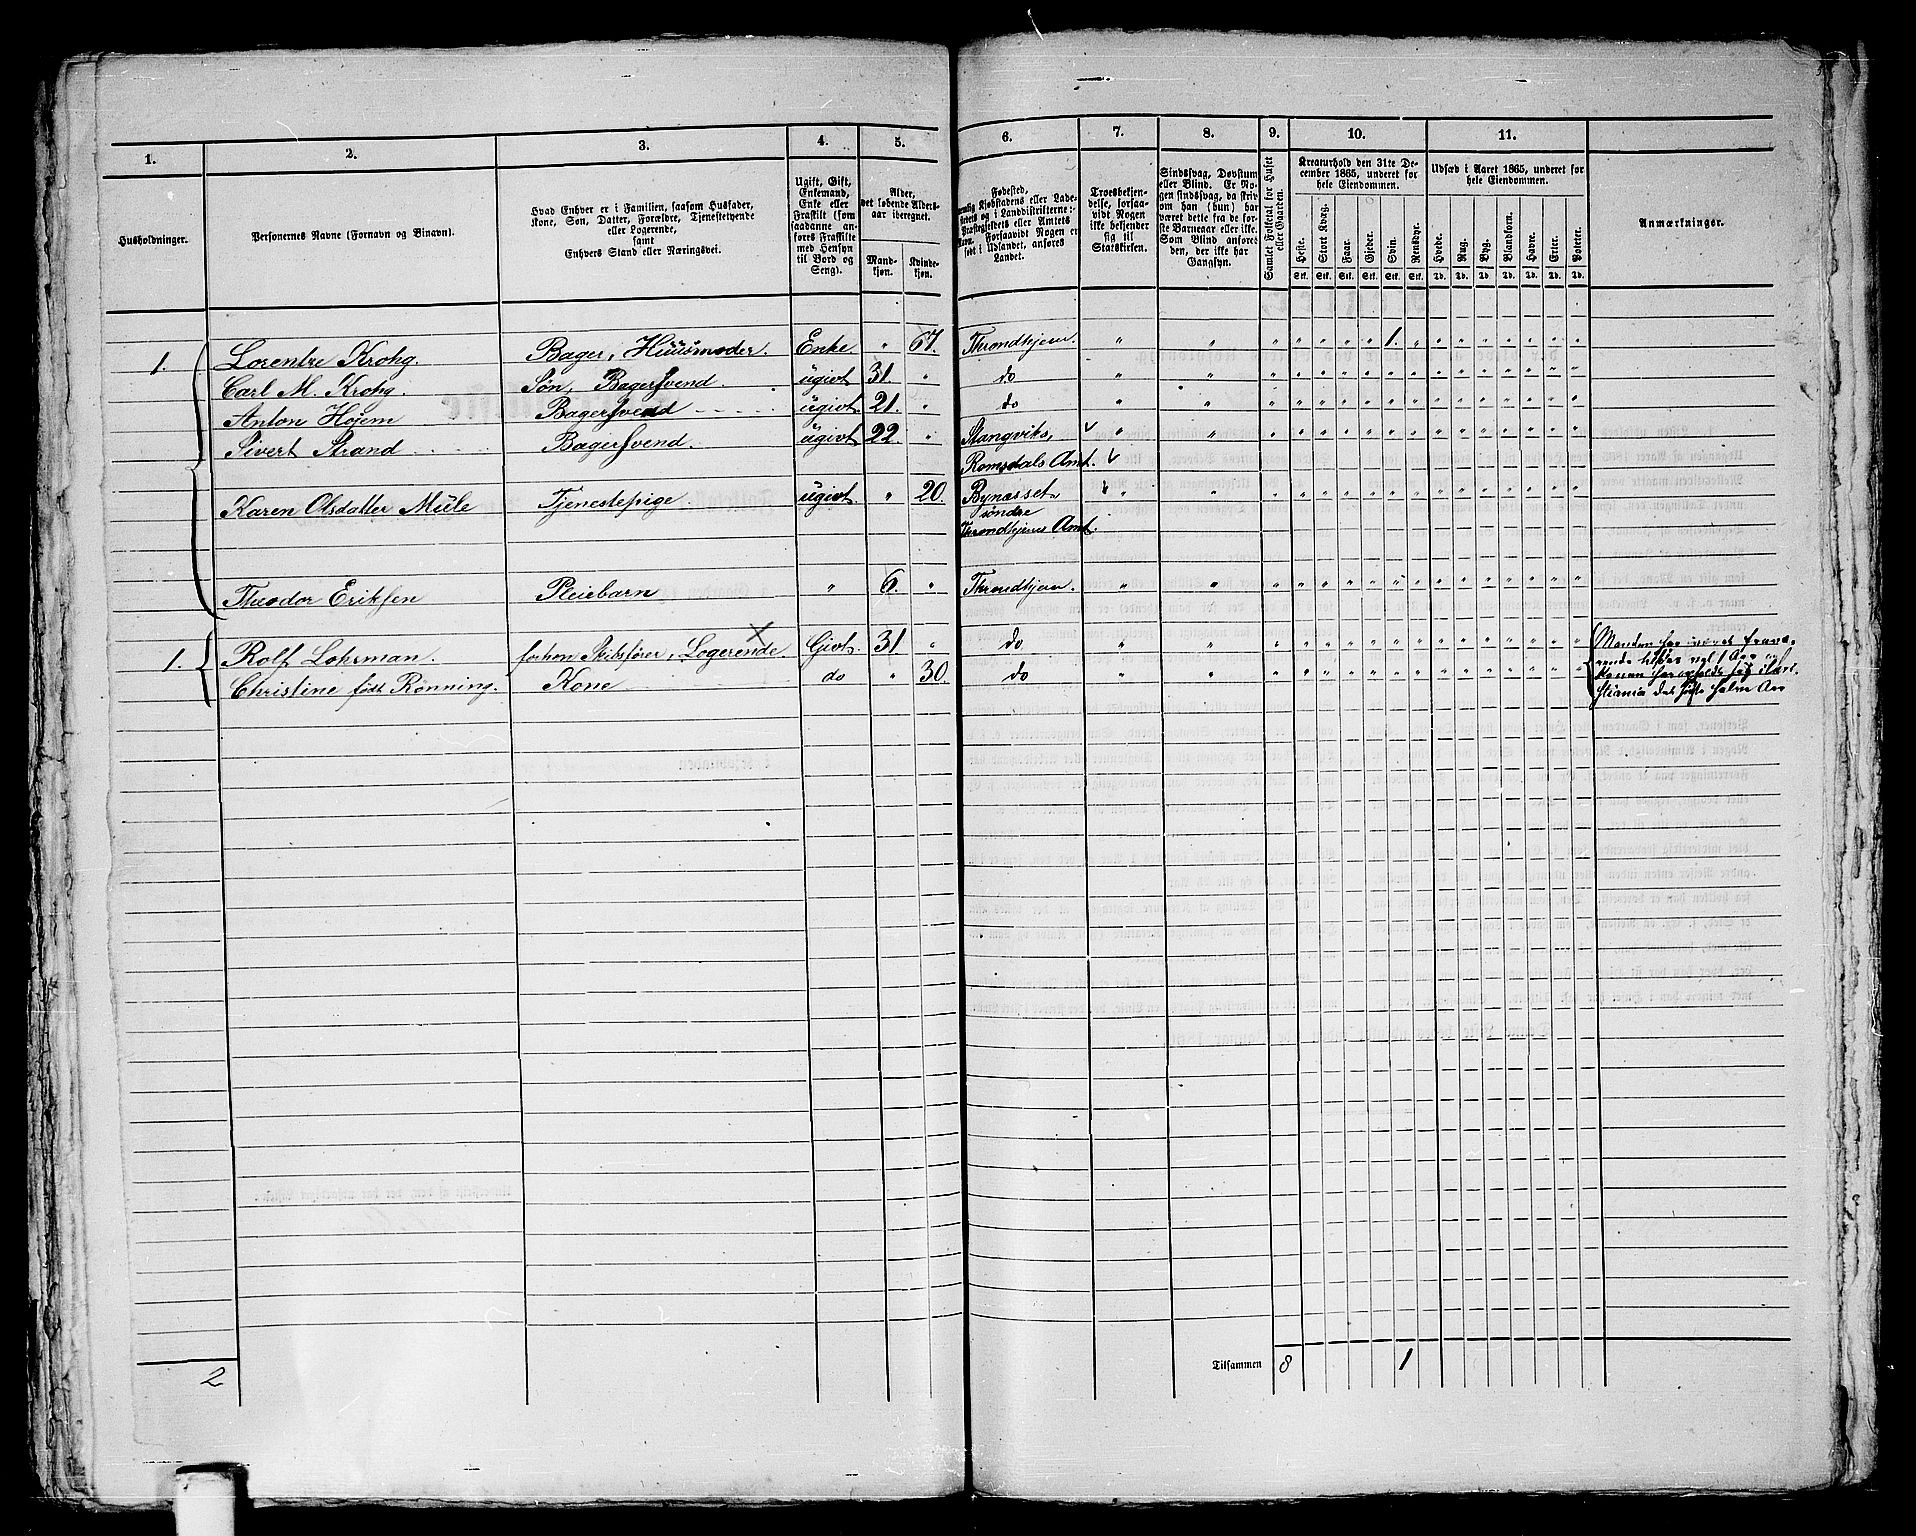 1. 2. 3. 4. 5. 6. 7. 8. 9. 10. 11.
Husholdninger.
Personernes Navne (Fornavn og Binavn).
Hvad Enhver er i Familien, saasom Husfader,
Kone, Søn, Datter, Forældre, Tjenestetyende
eller Logerende,
samt
Enhvers Stand eller Næringsvei.
Ugift, Gift,
Enkemand,
Enke eller
Fraskilt (som
saadanne an-
føres Fraskilte
med Hensyn
til Bord og
Seng).
Alder,
det løbende Alders-
aar iberegnet.
Mand-
kjøn.
Kvinde-
kjøn.
Fødested,
Kjøbstadens eller Lade-
stedets og i Landdistrikterne:
Præstegjeldets eller Amtets
Navn. Forsaavidt Nogen er
født i Udlandet, anføres
Landet.
Troesbekjen-
delse, forsaa-
vidt Nogen
ikke bekjender
sig til
Statskirken.
Sindssvag, Døvstum
eller Blind. Er No-
gen sindssvag, da skriv
om han (hun) har
været dette fra de før-
ste Barneaar eller ikke.
Som Blind anføres
den, der ikke har
Gangsyn.
Samlet Folketal for Huset
eller Gaarden.
Kreaturhold den 31te De-
cember 1865, underet for
hele Eiendommen.
Heste. Stort Kvæg. Faar. Gjeder. Svin. Rensdyr.
Stk. Stk. Stk. Stk. Stk. Stk.
Udsæd i Aaret 1865, underet for
hele Eiendommen.
Hvede. Rug. Byg. Blandkorn. Havre. Erter. Poteter.
Td. Td. Td. Td. Td. Td. Td.
Anmærkninger.
1. Lorentze Krohg. Bager, Huusmoder. Enke. " 67. Throndhjem " " " " " " " 1. " " " " " " " "
Carl M. Krohg. Søn, Bagersvend. ugivt 31. " do " " " " " " " " " " " " " " " "
Anton Højem Bagersvend ugivt. 21. " do " " " " " " " " " " " " " " " "
Sivert Strand Bagersvend. ugivt 22. " Stangviks, " " " " " " " " " " " " " " " "
Romsdals Amt.
Karen Olsdatter Mule Tjenestepige. ugivt. " 20. Bynæsset " " " " " " " " " " " " " " " "
søndre
Throndhjems Amt.
Theodor Eriksen Pleiebarn " 6. " Throndhjem. " " " " " " " " " " " " " " " "
1. Rolf Lohrman. forhen Skibsfører, Logerende. Givt. 31 " do " " " " " " " " " " " " " " " "
Christine født Rønning. Kone do " 30. do " " " " " " " " " " " " " " " "
Manden har været fravæ-
rende
Konen har opholdt sig i Chri-
stiania det sidste halve Aar
2 Tilsammen 8 1